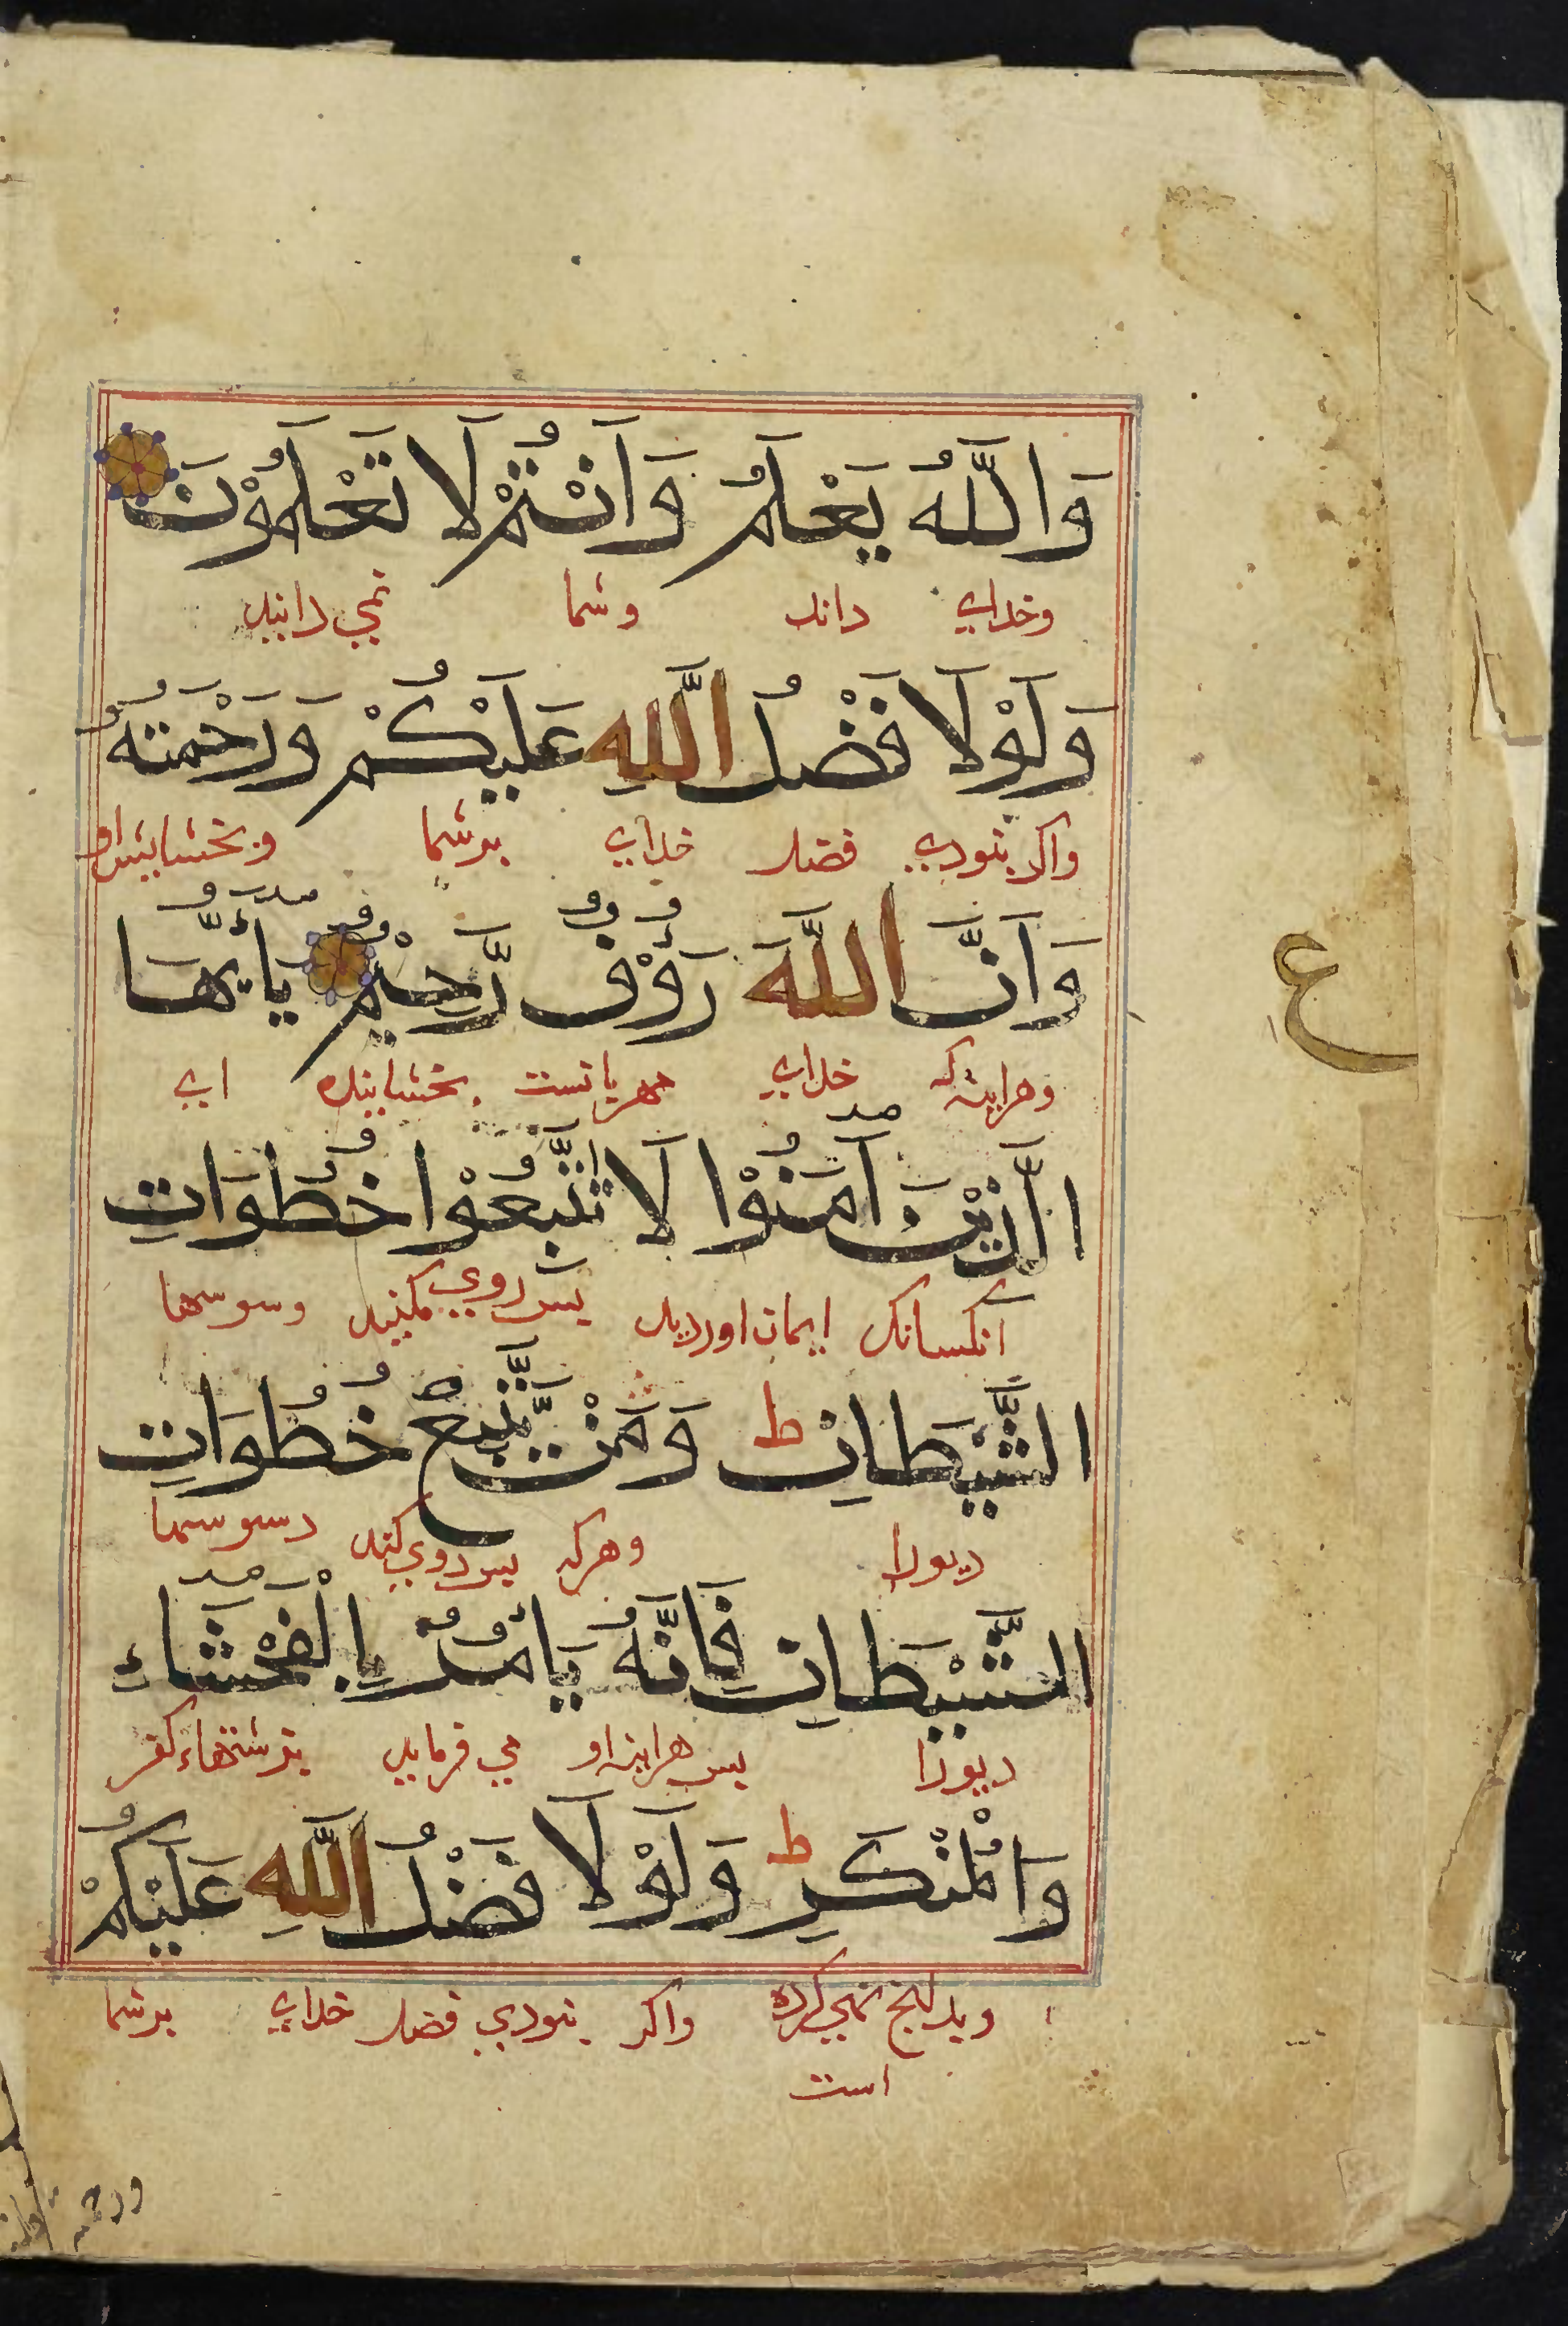 وَاللَّهُ يَعْلَمُ وَأَنْتُمْ لَا تَعْلَمُوْنَ
وخدای داند وشما نمي دانید
وَلَوْلَا فَضْلُ اللَّهِ عَلَيْكُمْ وَرَحْمَتُهُ
واکر بنودي فضل خدای برشما وبخشایش او
وَاَنَّ اللَّهَ رَؤُوْفٌ رَّحِيْمٌ يَاأَيُّهَا
وهراینه که خدای مهربانست بخشاینده ای
الَّذِيْنَ آمَنُوْا لَا تَتَّبِعُوْا خُطُوَاتِ
آنکسانک ایمان اوردید پس روي مکنید وسوسها
الشَّيْطَانِ ط وَمَنْ يَّتَّبِعْ خُطُوَاتِ
دیورا وهرکه پس روي کند وسوسها
الشَّيْطَانِ فَاِنَّهُ يَأْمُرُ بِالْفَحْشَاءِ
دیورا پس هراینه او مي فرماید بزشتهاء کفر
وَالْمُنْكَرِ ط وَلَوْلَا فَضْلُ اللَّهِ عَلَيْكُمْ
وبدانج نهي کرده واکر بنودي فضل خدای برشما
است
ع
ورحمته